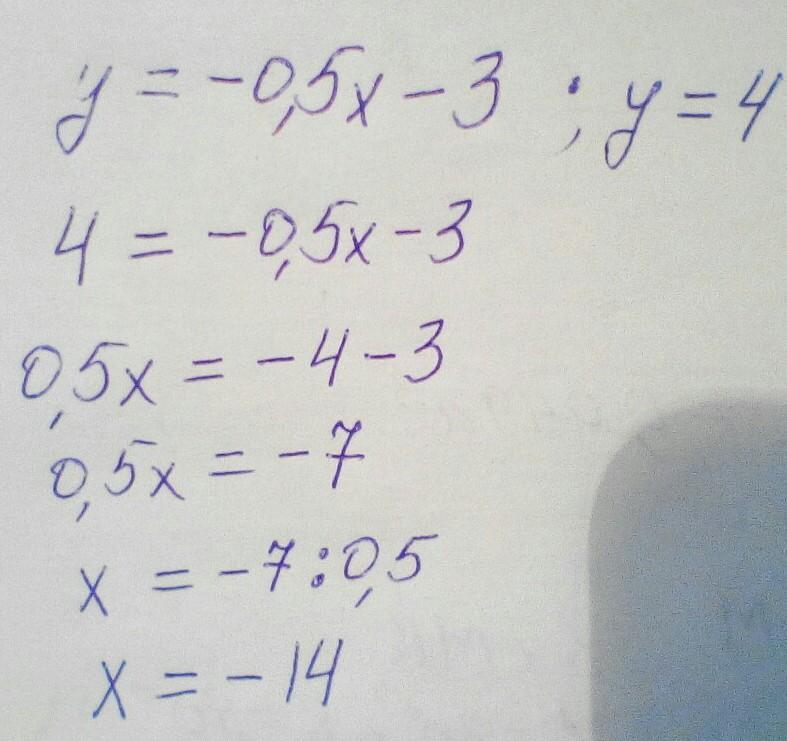 y = -0,5x - 3 ; y = 4
4 = -0,5x - 3
0,5x = -4 - 3
0,5x = -7
x = -7 : 0,5
x = -14